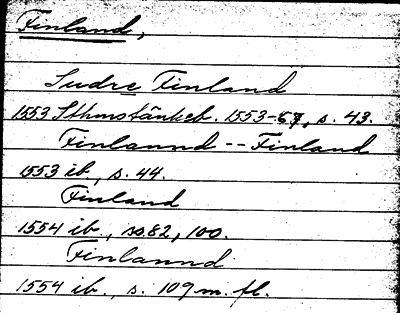 Finland,
Sudre Finland
1553 Sthmstänkeb. 1553-57, s. 43.
Finlannd -- Finland
1553 ib., s. 44.
Finland
1554 ib., ss. 82, 100.
Finlannd
1554 ib., s. 109 m. fl.